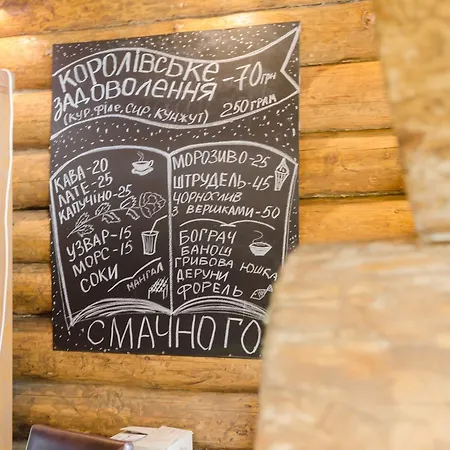 КОРОЛІВСЬКЕ
ЗАДОВОЛЕННЯ
-70грн
(КУР.ФІЛЕ,СИР,КУНЖУТ)
250ГРАМ
КАВА-20
ЛАТЕ-25
КАПУЧІНО-25
УЗВАР-15
МОРС-15
СОКИ
МАНГАЛ
МОРОЗИВО-25
ШТРУДЕЛЬ-45
ЧОРНОСЛИВ
З ВЕРШКАМИ-50
БОГРАЧ
БАНОШ
ГРИБОВА ЮШКА
ДЕРУНИ
ФОРЕЛЬ
СМАЧНОГО